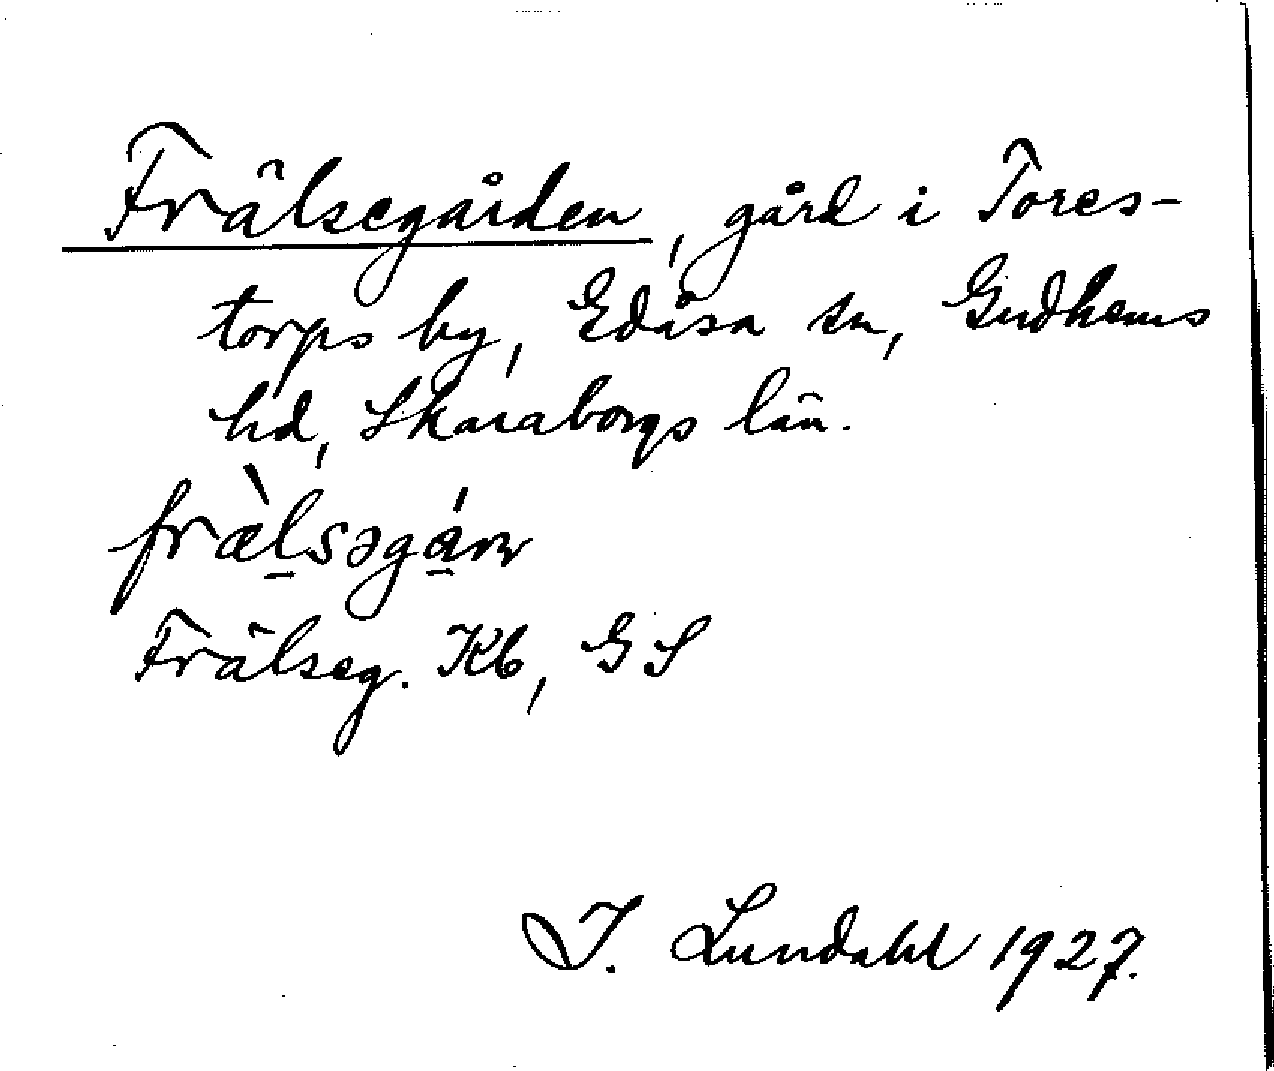 Frälsegården, gård i Tores-
torps by, Edåsa sn, Gudhems
hd, Skaraborgs län.
fræ̀l̠səgá̠ɳ
Frälseg. Kb, GS
I. Lundahl 1927.